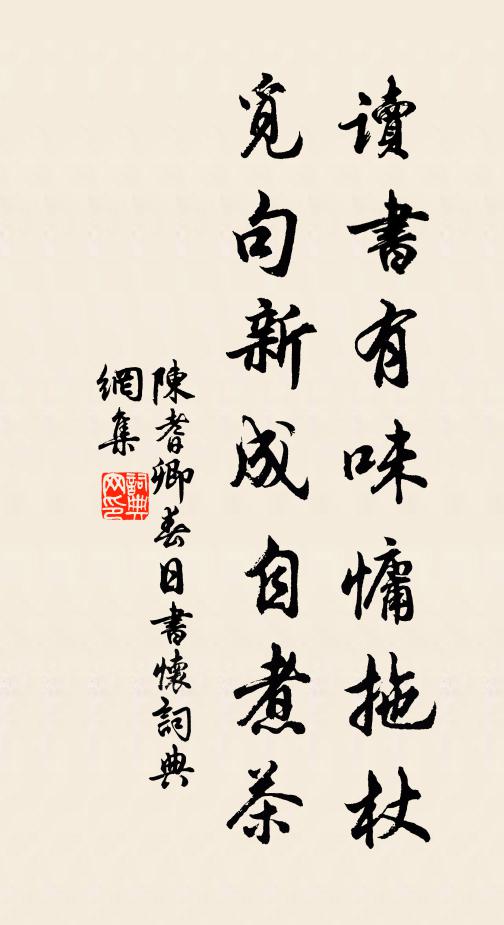 讀書有味慵拖杖
覓句新成自煮茶
陳耆卿春日書懷詞典
網集
詞典
网印